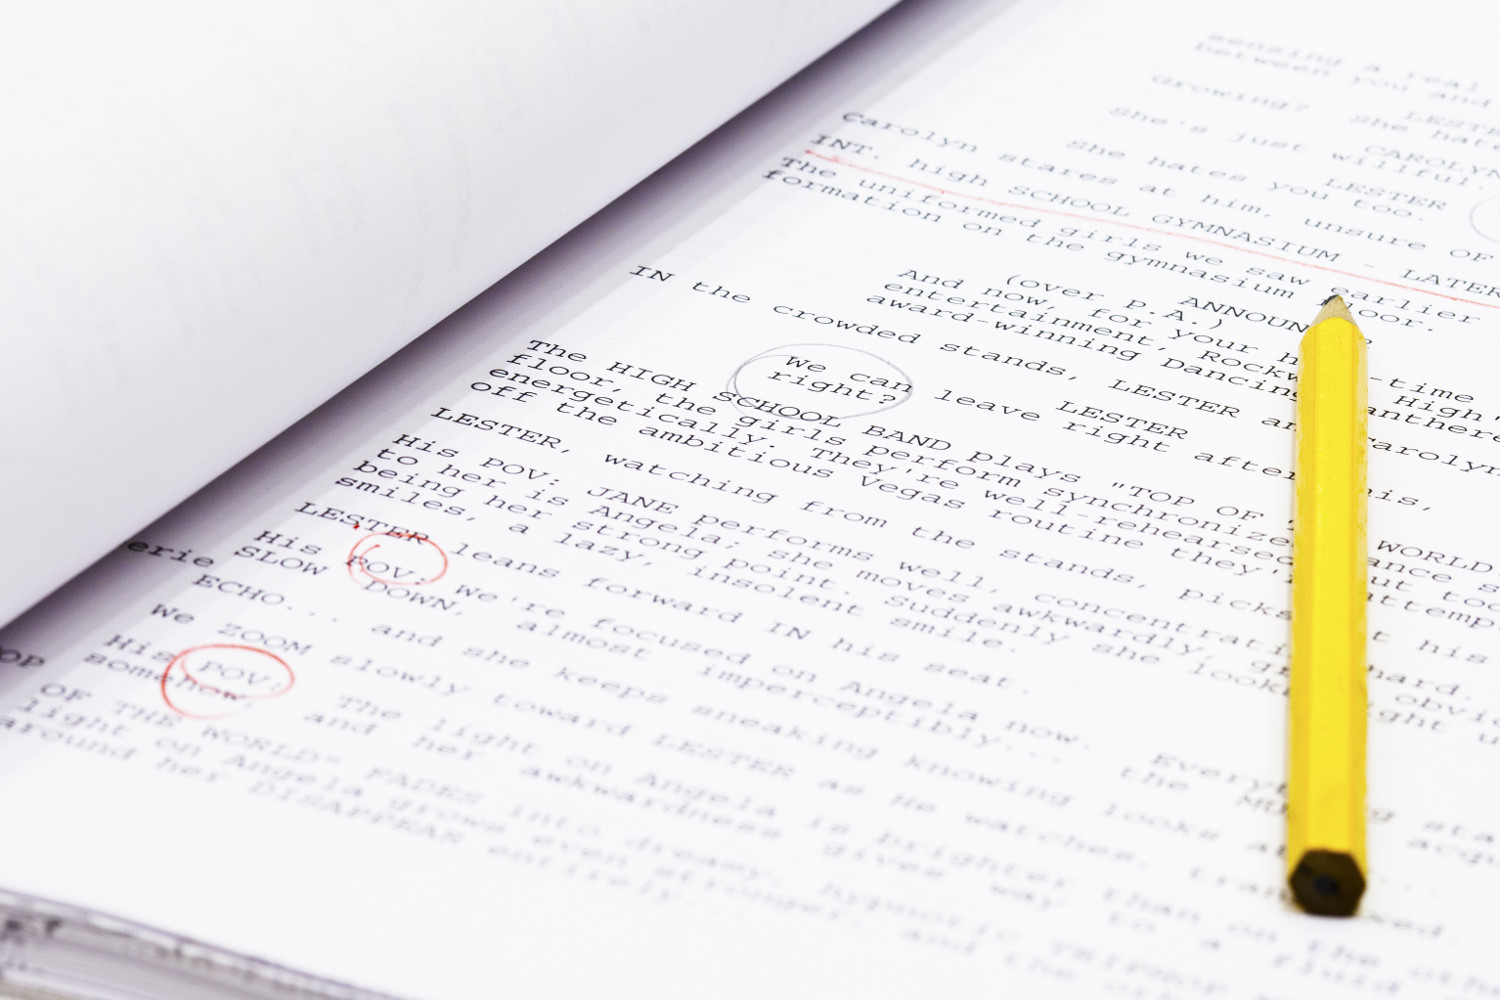 sensing a real
between you and
LESTE
Growing? She hate
CAROLYN
She's just willful.
LESTER
She hates you too.
Carolyn stares at him, unsure OF
INT. high SCHOOL GYMNASIUM - LATER
The uniformed girls we saw earlier
formation on the gymnasium floor.
ANNOUN
(over P.A.)
And now, for your h -time
entertainment, Rockw High
award-winning Dancing anthere
IN the crowded stands, LESTER an Carolyn
LESTER
We can leave right after his,
right?
The HIGH SCHOOL BAND plays "TOP OF WORLD
floor, the girls perform synchronize ance s
energetically. They're well-rehearsed ut too
off the ambitious Vegas routine they attemp
LESTER, watching from the stands, picks t his
His POV: JANE performs well, concentrati hard.
to her is Angela; she moves awkwardly, g obvio
being her strong point. Suddenly she look ight u
smiles, a lazy, insolent smile.
LESTER leans forward IN his seat.
His POV: We're focused on Angela now. Everyt sta
SLOW DOWN, almost imperceptibly... the MU acqu
ECHO... and she keeps sneaking knowing looks a
We ZOOM slowly toward LESTER as He watches, tran xed.
His POV: The light on Angela is brighter than on the othe
somehow, and her awkwardness gives way to a fluid
OF THE WORLD" FADES into dreamy, hypnotic
light on Angela grows even stronger, and the
around her DISAPPEAR entirely...
erie
OP